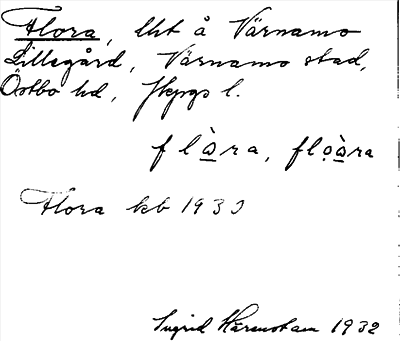 Flora, lht å Värnamo
Lillegård, Värnamo stad,
Östbo hd, Jkpgs l.
flὰra, flo̤ὰra
Flora kb 1930
Ingrid 1932